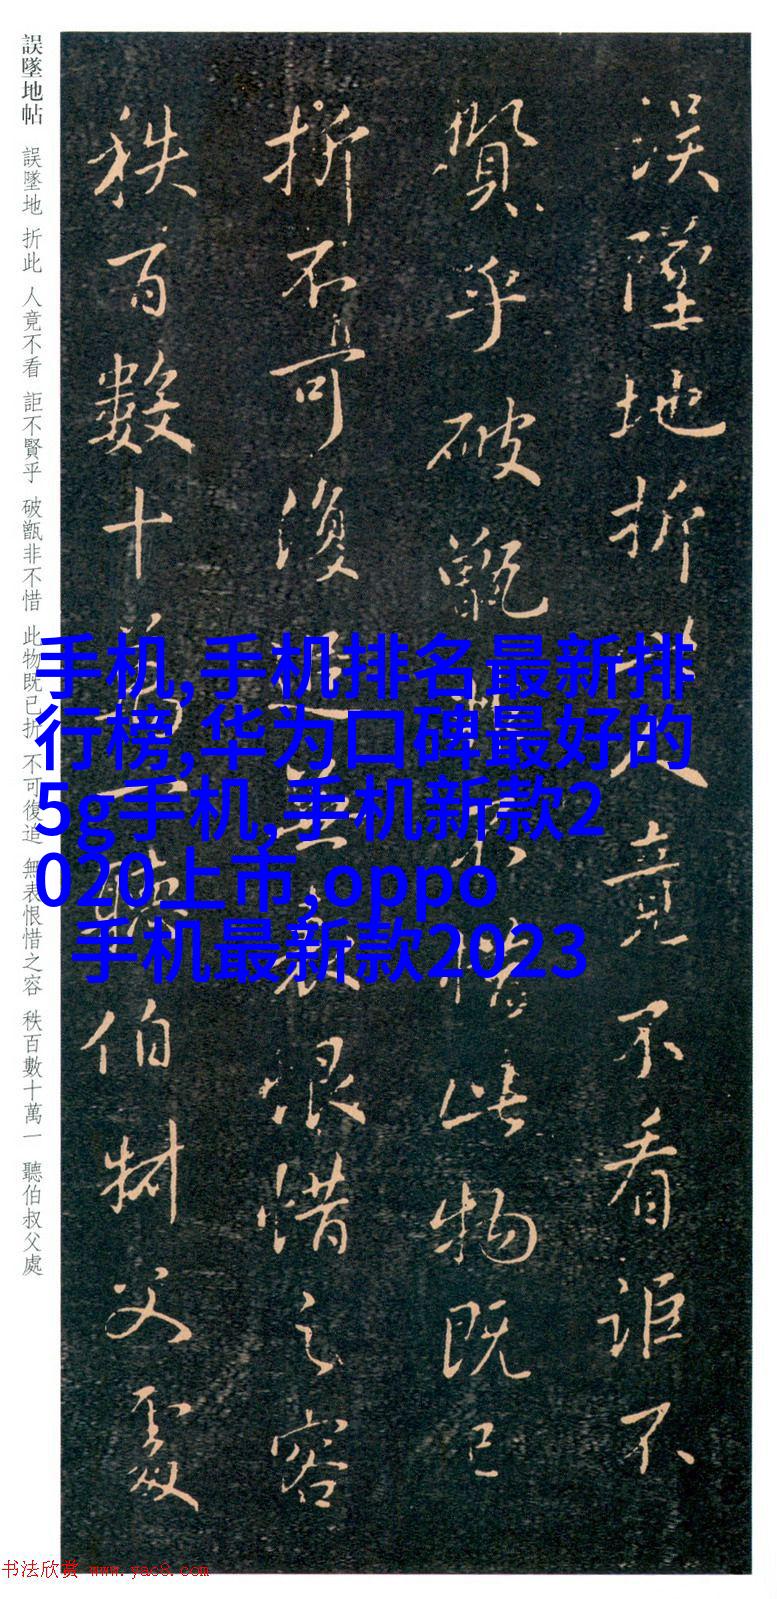 誤墜地帖 誤墜地 折此 人竟不看 詎不賢乎 破甑非不惜 此物既已折 不可復追 無表恨惜之容 秩百數十萬一 聽伯叔父處
誤墜地折此人竟不看詎不
賢乎破甑非不惜此物既已
折不可復追無表恨惜之容
秩百數十萬一聽伯叔父處
手机,手机排名最新排
行榜,华为口碑最好的
5g手机,手机新款2
020上市,oppo
手机最新款2023
书法欣赏 www.yac8.com